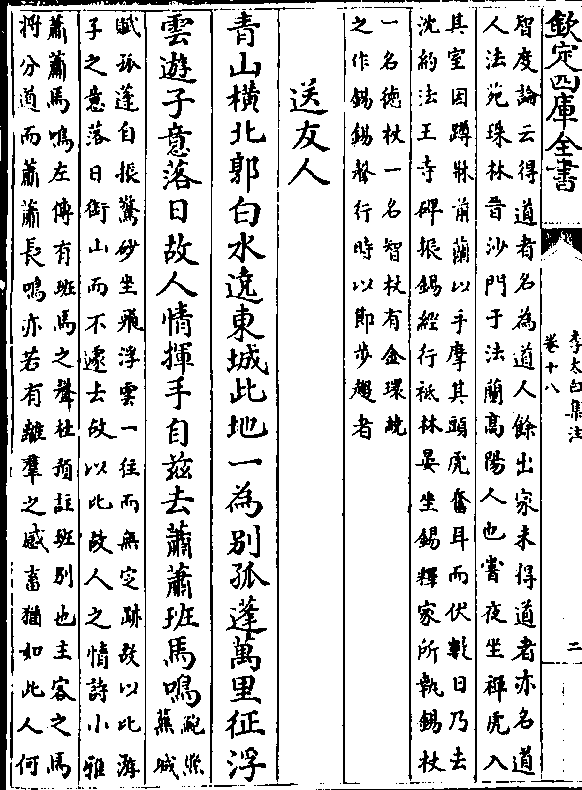 欽定四庫全書
李太白集注
卷十八
二
智度論云得道者名為道人餘出家未得道者亦名道
人法苑珠林晉沙門于法蘭高陽人也嘗夜坐禪虎入
其室因蹲牀前蘭以手摩其頭虎奮耳而伏數日乃去
沈約法王寺碑振錫經行祗林晏坐錫釋家所執錫杖
一名德杖一名智杖有金環繞
之作錫錫聲行時以即步趨者
送友人
青山橫北郭白水遶東城此地一為别孤蓬萬里征浮
雲遊子意落日故人情揮手自兹去蕭蕭班馬鳴
鮑照
蕪城
賦孤蓬自振驚砂坐飛浮雲一往而無定跡故以比游
子之意落日銜山而不遽去故以比故人之情詩小雅
蕭蕭馬鳴左傳有班馬之聲杜預註班别也主客之馬
將分道而蕭蕭長鳴亦若有離羣之感畜猶如此人何